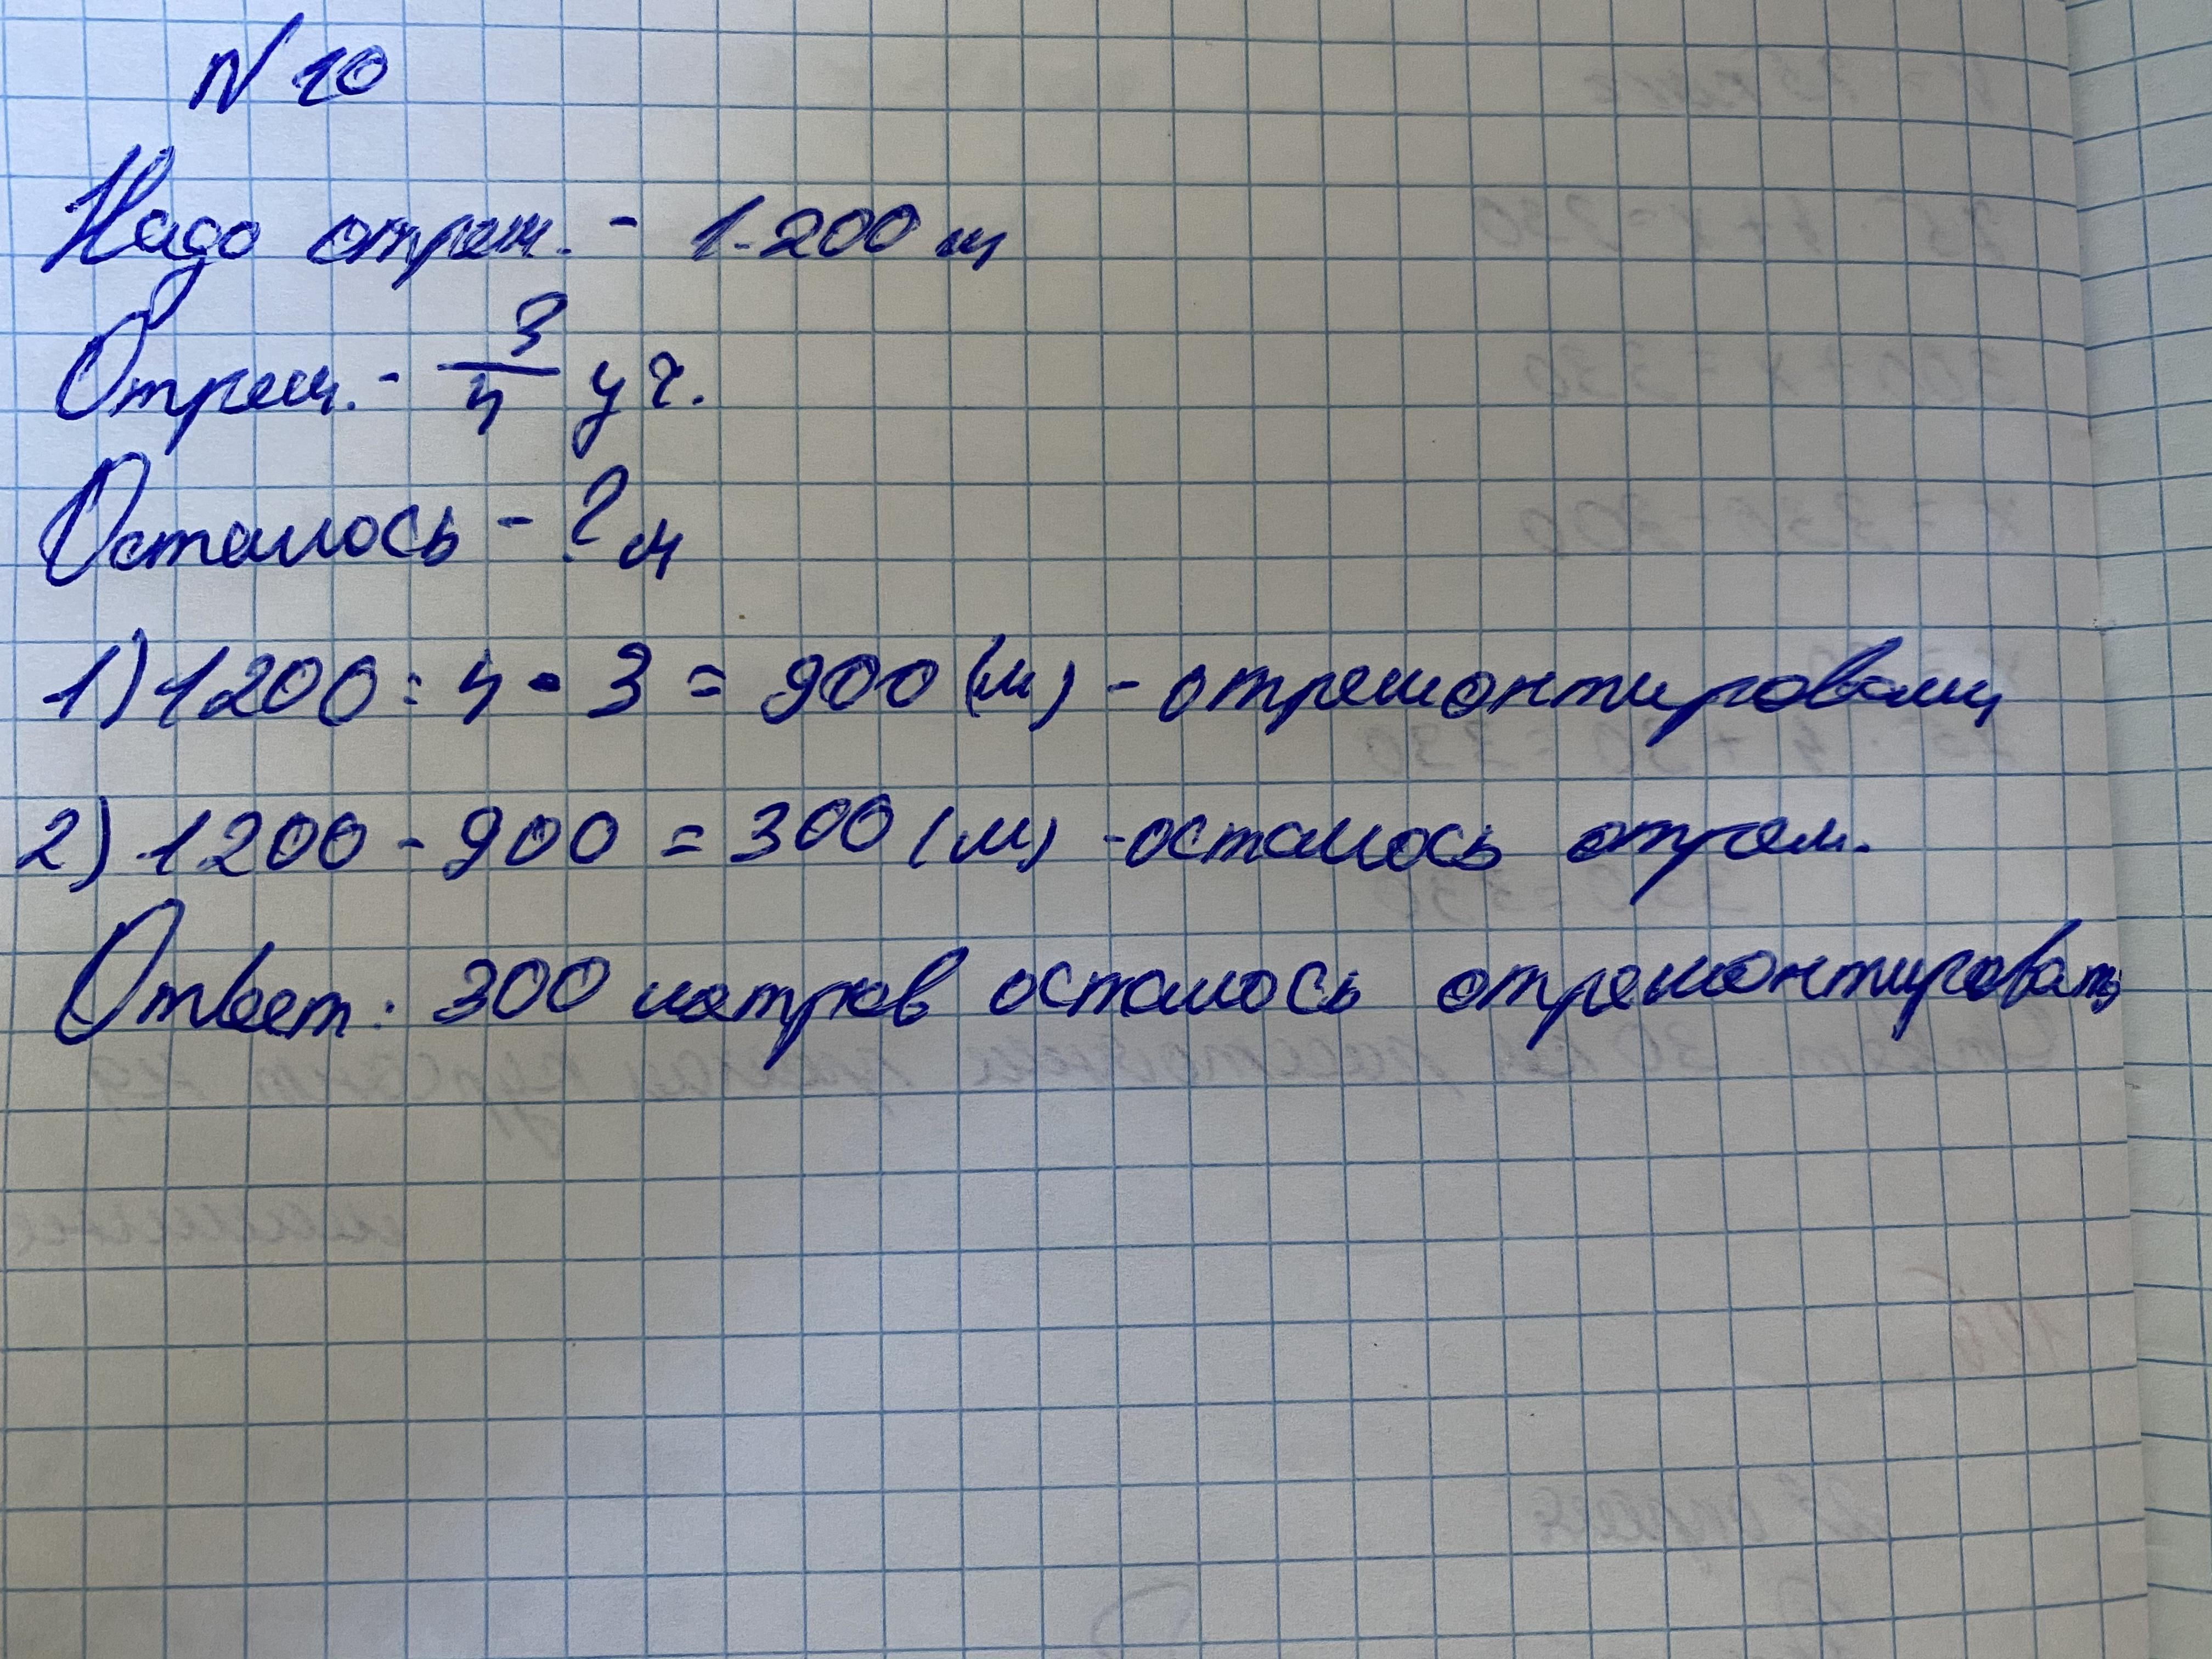 N 10
Надо отрем. - 1 200 м
Отрем. - 3/4 уч.
Осталось - ? м
1) 1200 : 4 • 3 = 900 (м) - отремонтировали
2) 1200 - 900 = 300 (м) - осталось отрем.
Ответ: 300 метров осталось отремонтировать